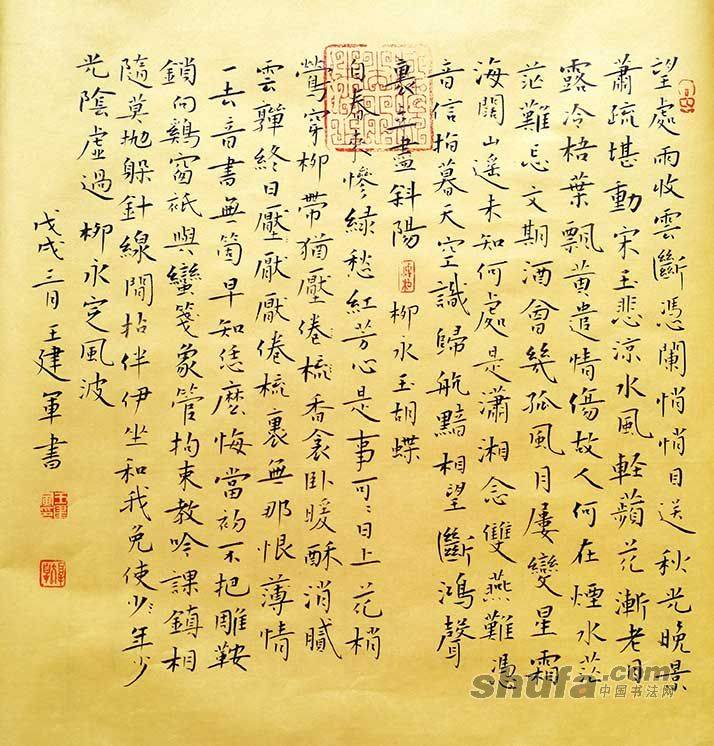 望處雨收雲斷憑闌悄悄目送秋光晚景
蕭疏堪動宋玉悲涼水風輕蘋花漸老月
露冷梧葉飄黃遣情傷故人何在煙水茫
茫難忘文期酒會幾孤風月屢變星霜
海闊山遙未知何處是瀟湘念雙燕難憑
音信指暮天空識歸航黯相望斷鴻聲
裏立盡斜陽 柳永玉胡蝶
自春來慘綠愁紅芳心是事可〻日上花梢
鶯穿柳帶猶壓倦梳香衾卧暖酥消膩
雲嚲終日壓厭厭倦梳裏無那恨薄情
一去音書無箇早知恁麼悔當初不把雕鞍
鎖向鷄窗祇與蠻箋象管拘束教吟課鎮相
隨莫拋躲針線閒拈伴伊坐和我免使少〻年少
光陰虛過 柳永定風波
戊戌三月王建軍書
shufa.com
中国书法网